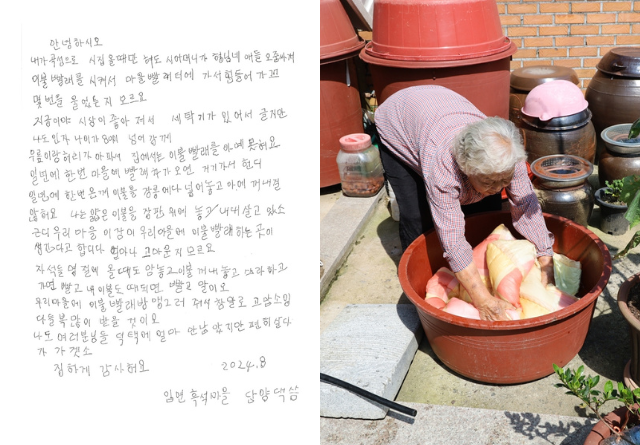 안녕하시오
내가 곡성으로 시집올때만 해도 시어머니가 형님네 애들 오줌싸게
이불빨래를 시켜서 마을 빨래터에 가서 힘들어 가꼬
몇번을 울었는지 모르요
지금이야 시상이 좋아져서 세탁기가 있어서 글지만
나도 인자 나이가 80이 넘어감께
무릎이랑 허리가 아파서 집에서는 이불빨래를 아예 못허요
일년에 한번 마을에 빨래차가 오면 거기가서 헌디
일년에 한번 온께 이불을 장롱에다 넣어놓고 아예 꺼내질
않허요 나는 얇은 이불을 장판 위에 놓고 내내 살고 있소
근디 우리 마을 이장이 우리마을에 이불빨래하는 곳이
생긴다고 합디다 얼마나 고마운지 모르요
자석들 명절에 올때도 암놓고 이불 꺼내 놓고
가면 빨고 내 이불도 때되면 빨고 말이오
우리마을에 이불빨래방 맹그러 줘서 참말로 고맙소잉
다들 복 많이 받을 것이오
나도 여러분들 덕택에 얼마 안남았지만 편히 살다
가 가겠소
징하게 감사허요 2024.8
입면 흑석마을 담양댁 씀